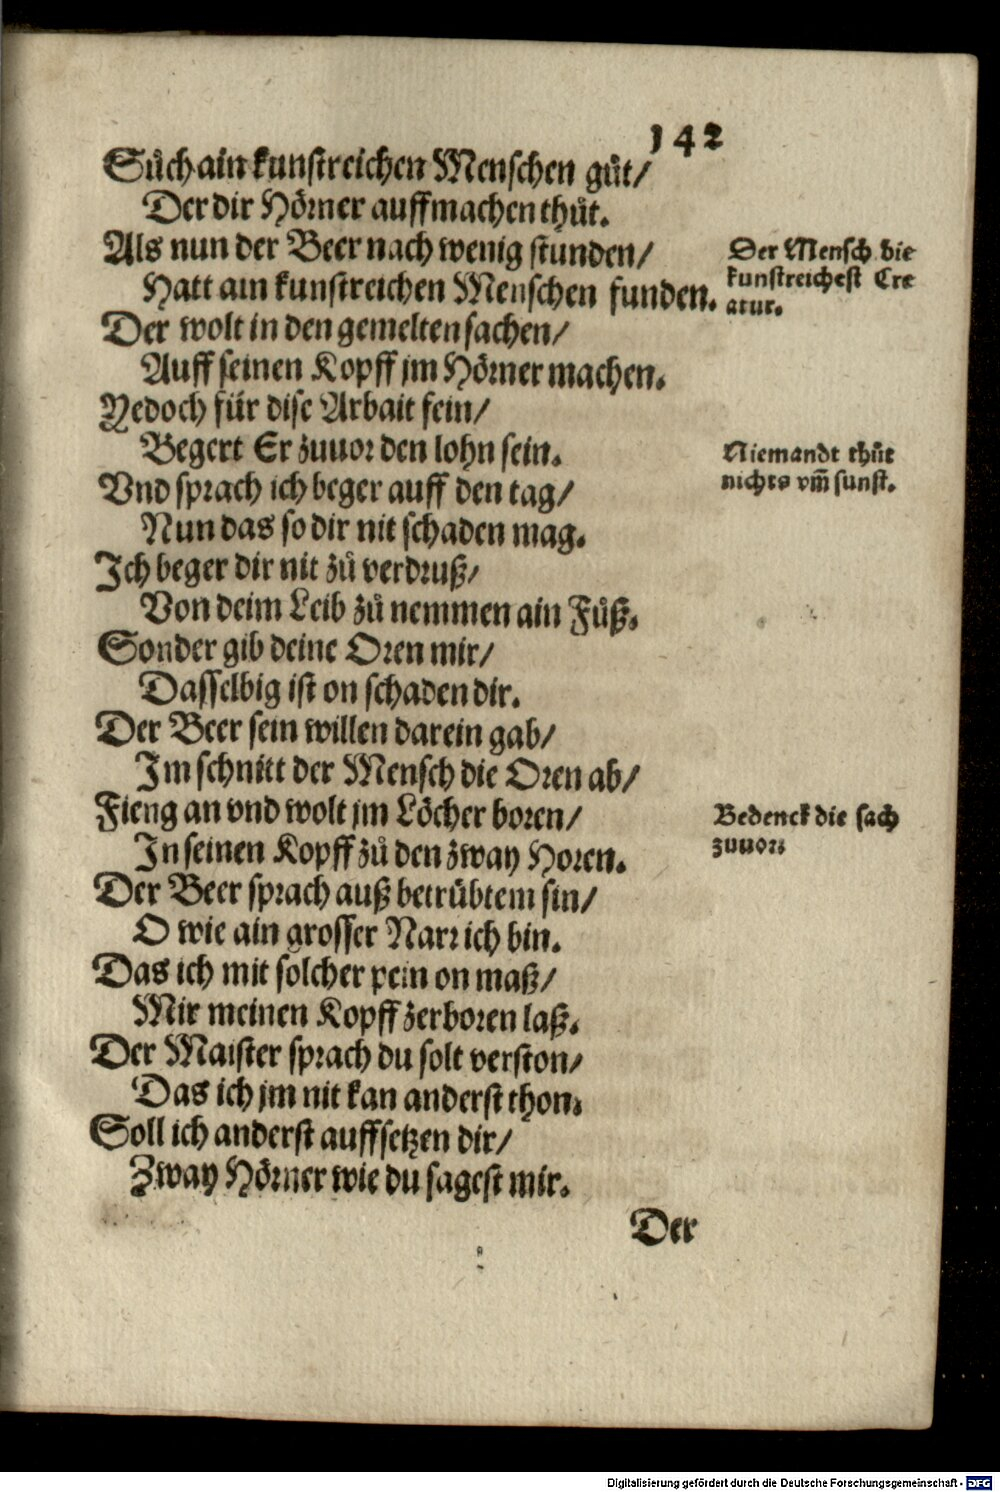 142
Sůch ain kunstreichen Menschen gůt/
Der dir Hörner auffmachen thůt.
Als nun der Beer nach wenig stunden/
Hatt ain kunstreichen Menschen funden.
Der Mensch die
kunstreichest Cre
atur.
Der wolt in den gemelten sachen/
Auff seinen Kopff jm Hörner machen.
Yedoch für dise Arbait fein/
Begert Er zuuor den lohn sein.
Niemandt thůt
nichts vm̃ sunst.
Vnd sprach ich beger auff den tag/
Nun das so dir nit schaden mag.
Ich beger dir nit zů verdruß/
Von deim Leib zů nemmen ain Fůß.
Sonder gib deine Oren mir/
Dasselbig ist on schaden dir.
Der Beer sein willen darein gab/
Im schnitt der Mensch die Oren ab/
Fieng an vnd wolt jm Löcher boren/
In seinen Kopff zů den zway Horen.
Bedenck die sach
zuuor.
Der Beer sprach auß betrübtem sin/
O wie ain grosser Narr ich bin.
Das ich mit solcher pein on maß/
Mir meinen Kopff zerboren laß.
Der Maister sprach du solt verston/
Das ich jm nit kan anderst thon.
Soll ich anderst auffsetzen dir/
Zway Hörner wie du sagest mir.
Der
Digitalisierung gefördert durch die Deutsche Forschungsgemeinschaft - DFG